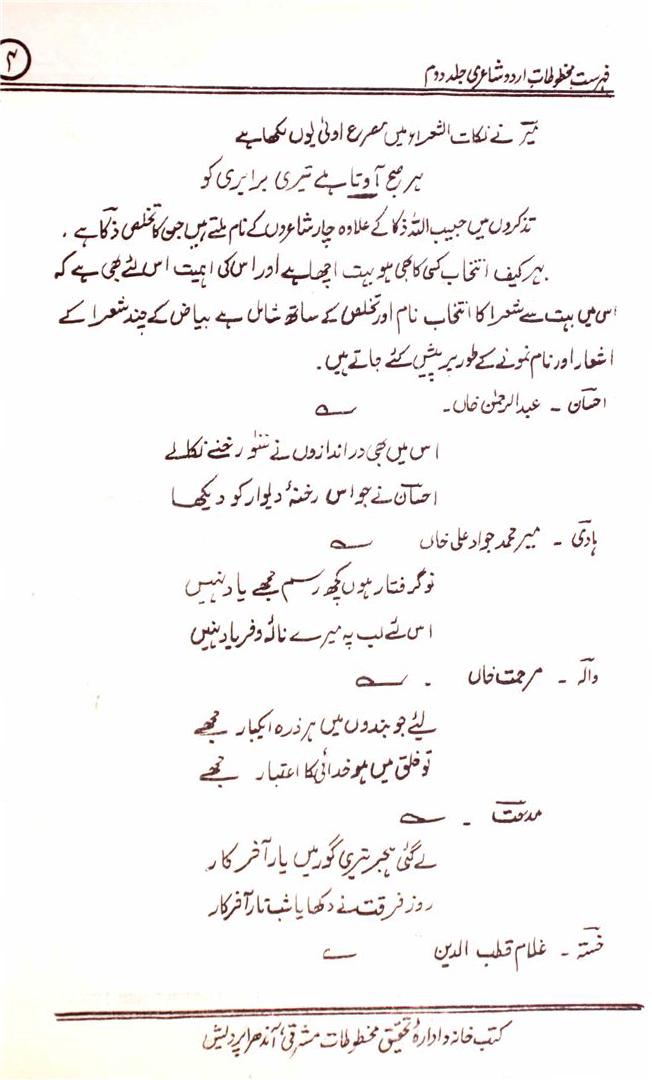 ۴
فہرست مخطوطات اردو شاعری جلد دوم
میرؔ نے نکات الشعراء میں مصرع اولیٰ یوں لکھا ہے
ہر صبح آوتا ہے تیری برابری کو
تذکروں میں حبیب اللہ ذکا کے علاوہ چار شاعروں کے نام ملتے ہیں جن کا تخلص ذکاؔ ہے ۔
بہر کیف انتخاب کسی کا بھی ہو بہت اچھا ہے اور اس کی اہمیت اس لئے بھی ہے کہ
اس میں بہت سے شعرا کا انتخاب نام اور تخلص کے ساتھ شامل ہے بیاض کے چند شعرا کے
اشعار اور نام نمونے کے طور پر پیش کئے جاتے ہیں ۔
احسانؔ ۔ عبدالرحمٰن خاں ۔
اس میں بھی در اندازوں نے سو رخنے نکالے
احسانؔ نے جو اس رخنۂ دیوار کو دیکھا
ہادیؔ ۔ میر محمد جواد علی خاں
نو گرفتار ہوں کچھ رسم مجھے یاد نہیں
اس لئے لب پہ میرے نالہ و فریاد نہیں
والہؔ ۔ مرحمت خاں ۔
لیئے جو بندوں میں ہر ذرہ ایکبار مجھے
تو خلق میں ہو خدائی کا اعتبار مجھے
۔
لے گئی ہجر تیری گور میں یار آخر کار
روز فرقت نے دکھایا شب تار آخر کار
خستہؔ ۔ غلام قطب الدین
کتب خانہ و ادارۂ تحقیق مخطوطات مشرقی، آندھرا پردیش